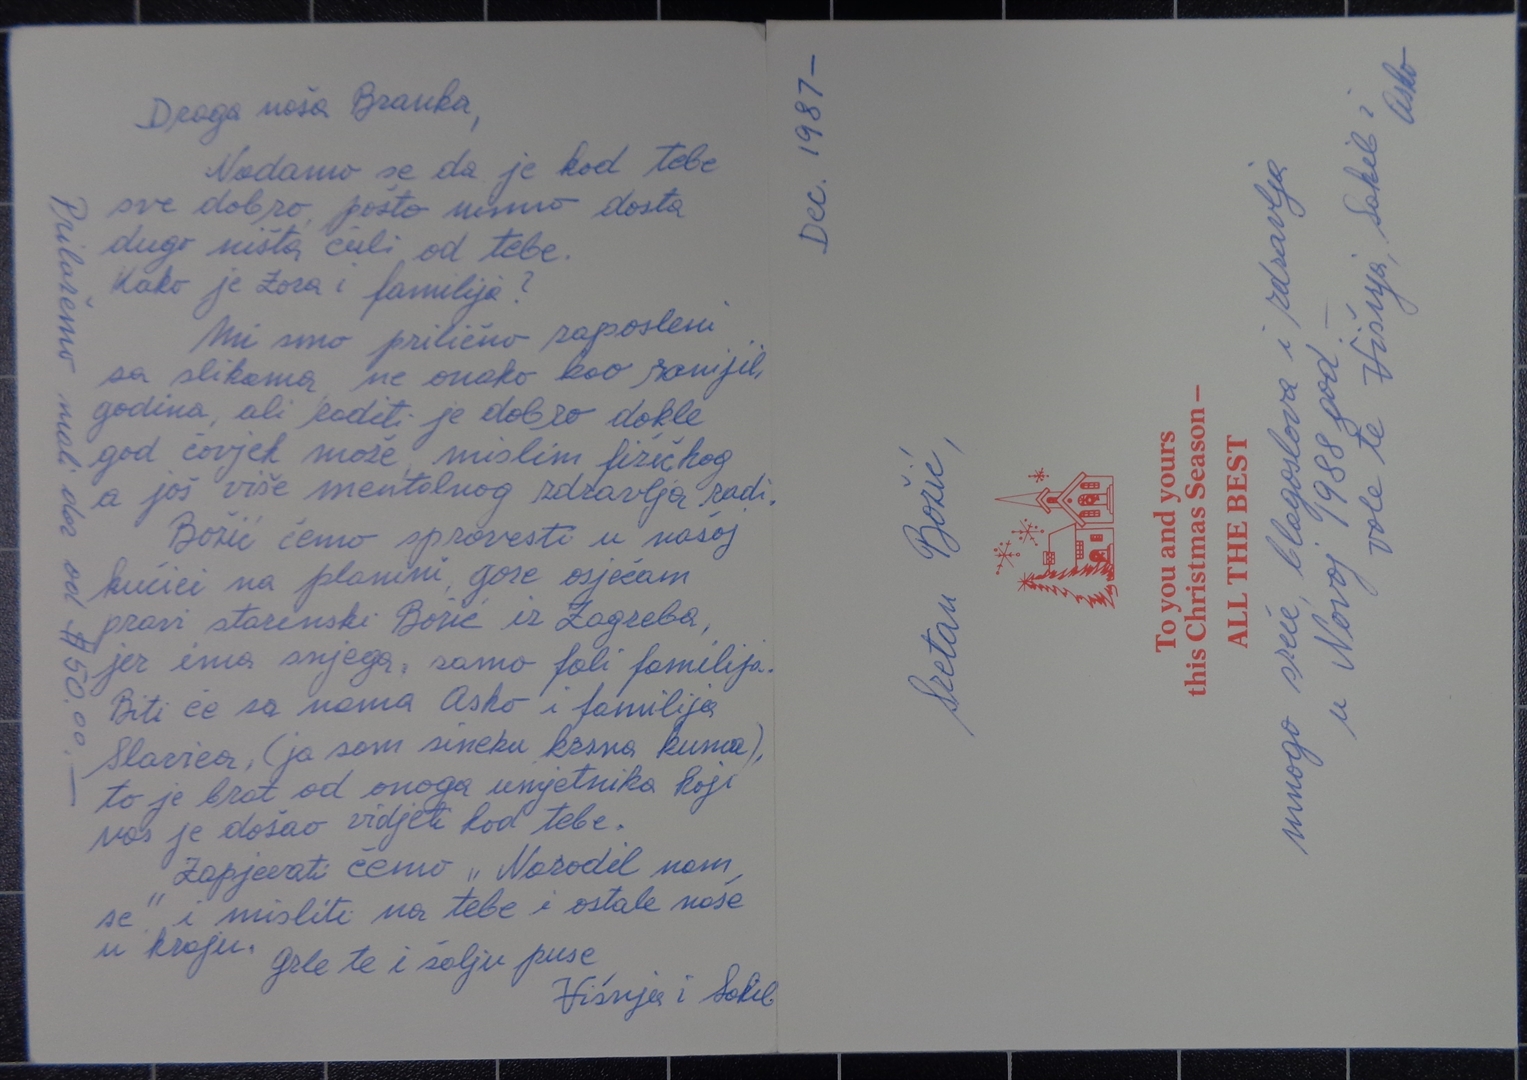 Draga naša Branka,
Nadamo se da je kod tebe
sve dobro, pošto nismo dosta
dugo ništa čuli od tebe.
Kako je Zora i familija?
Mi smo prilično zaposleni
sa slikama, ne onako kao ranijih
godina, ali raditi je dobro dokle
god čovjek može, mislim fizičkog
a još više mentalnog zdravlja radi.
Božić ćemo sprovesti u našoj
kućici na planini, gore osjećam
pravi starinski Božić iz Zagreba,
jer ima snjega, samo fali familija.
Biti će sa nama Asko i familija
Slavica, (ja sam sineku krsna kuma),
to je brat od onoga umjetnika koji
vas je došao vidjeti kod tebe.
Zapjevati ćemo „Narodil nam
se" i misliti na tebe i ostale naše
u kraju.
Grle te i šalju puse
Višnja i Sakib
Prilažemo mali dar od $50.00.—
Dec. 1987—
Sretan Božić,
To you and yours
this Christmas Season –
ALL THE BEST
mnogo sreće, blagoslova i zdravlja
u Novoj 1988 god —
vole te Višnja, Sakib i
Asko